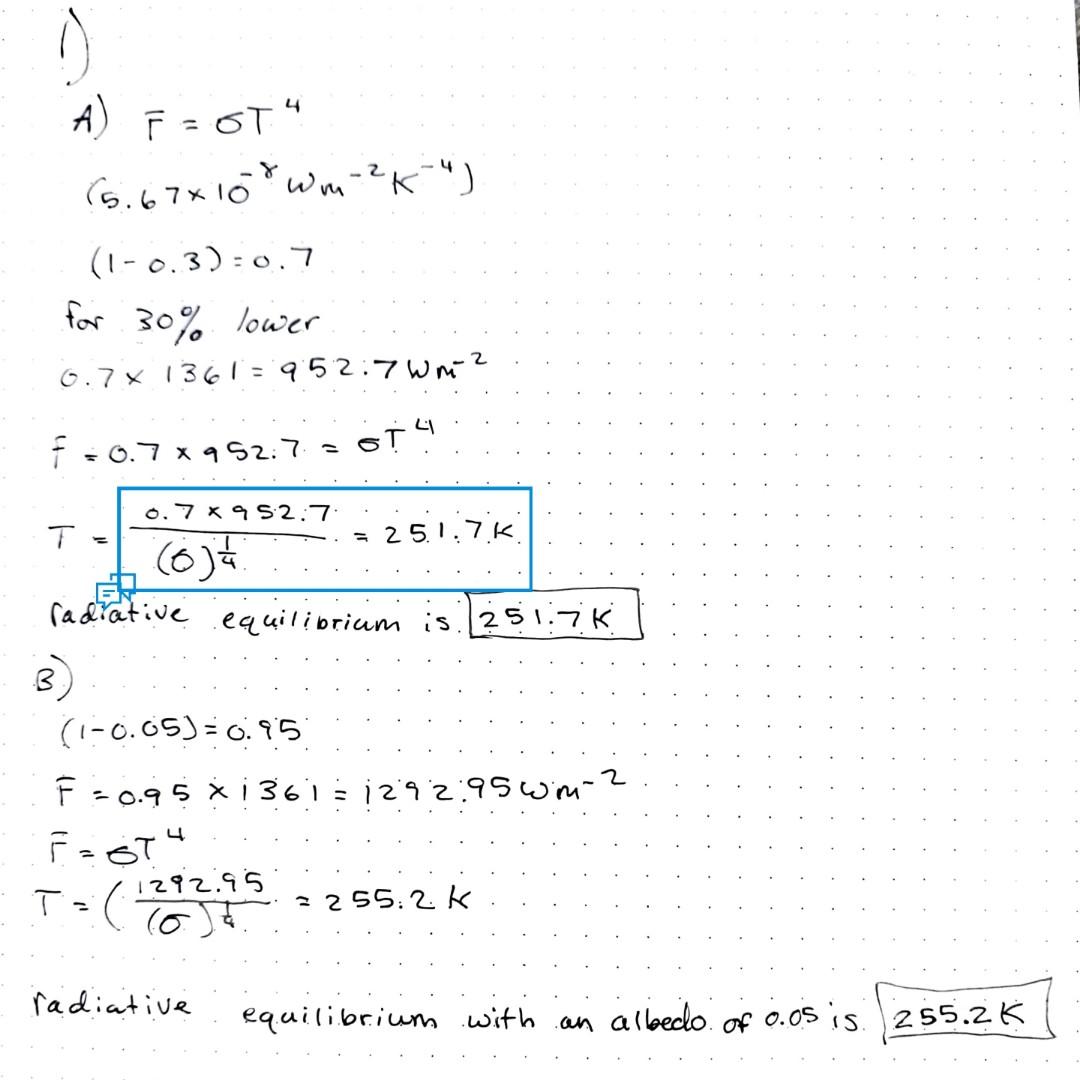 1)
A) F = σT⁴
(5.67×10⁻⁸ Wm⁻²K⁻⁴)
(1-0.3)=0.7
for 30% lower
0.7× 1361 = 952.7 Wm⁻²
F = 0.7 × 952.7 = σT⁴
T = 0.7 × 952.7 / (σ)^¼ = 251.7 K
radiative equilibrium is 251.7 K
B)
(1-0.05)=0.95
F = 0.95 × 1361 = 1292.95 Wm⁻²
F = σT⁴
T = ( 1292.95 / (σ)^¼ = 255.2 K
radiative equilibrium with an albedo of 0.05 is 255.2 K